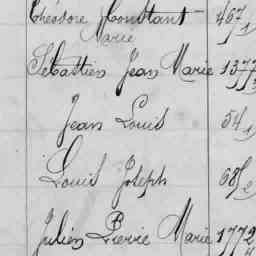 Théodore Constant 467/1
Marie
Sébastien Jean Marie 1377/3
Jean Louis 54/1
Louis Joseph 68/2
Julien Pierre Marie 1772